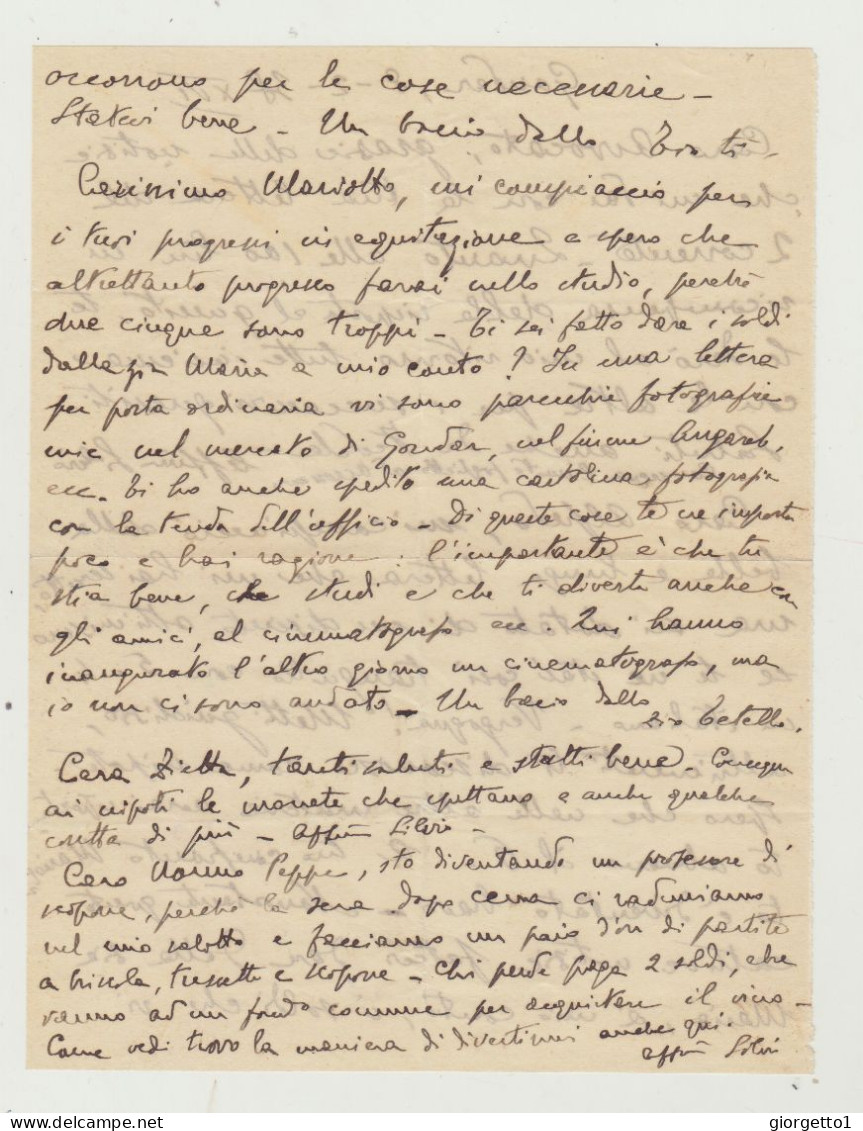 occorrono per le cose necessarie -
Statevi bene - Un bacio dallo Zio
Carissimo Mariotto, mi compiaccio per
i tuoi progressi in equitazione e spero che
altrettanto progresso farai nello studio, perchè
due cinque sono troppi - Ti sei fatto dare i soldi
dalla zia Maria a mio conto? In una lettera
per posta ordinaria vi sono parecchie fotografie
mie nel mercato di Gondar, nel fiume Angareb,
ecc. Ti ho anche spedito una cartolina fotografia
con la tenda dell'ufficio - Di queste cose te ne importa
poco e hai ragione: l'importante è che tu
stia bene, che studi e che ti diverta anche con
gli amici, al cinematografo ecc. Qui hanno
inaugurato l'altro giorno un cinematografo, ma
io non ci sono andato - Un bacio dallo
zio Totello.
Cara Zietta, tanti saluti e statti bene -
ai nipoti le monete che spettano e anche qualche
cosetta di più - Affmo Silvio -
Caro Nonno Peppe, sto diventando un professore di
scopone, perchè la sera dopo cena ci raduniamo
nel mio salotto e facciamo un paio d'ore di partite
a briscola, tressette e scopone - Chi perde paga 2 soldi, che
vanno ad un fondo comune per acquistare il vino -
Come vedi trovo la maniera di divertirmi anche qui.
affmo Silvio
giorgetto1